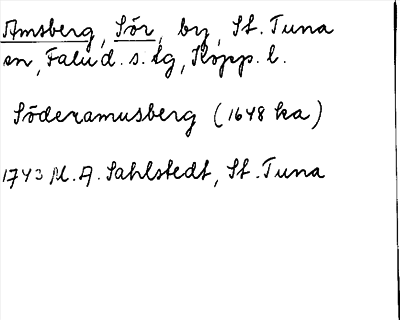 Amsberg, Sör, by, St. Tuna
sn, Falu d. s. tg, Kopp. l.
Söderamusberg (1648 ka)
1743 M. A. Sahlstedt, St. Tuna